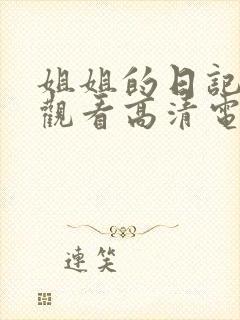 姐姐的日記
觀看高清電
連笑